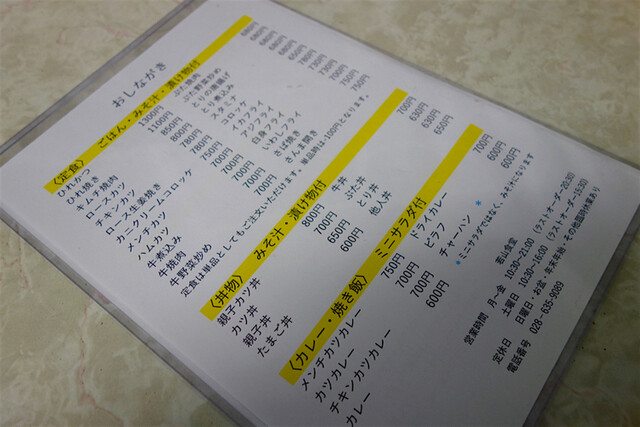 おしながき
〈定食〉 ごはん・みそ汁・漬け物付
ひれかつ 1300円 ぶた焼肉 680円
ひれ焼き 1100円 ぶた野菜炒め 680円
キムチ焼肉 850円 とりの唐揚げ 680円
ロースカツ 800円 とり煮込み
チキンカツ 780円 スタミナ
ロース生姜焼き 750円 コロッケ
カニクリームコロッケ 700円 イカフライ
メンチカツ 700円 アジフライ
ハムカツ 700円 白身フライ
牛煮込み 700円 いわしフライ
牛焼肉 さば焼き
牛野菜炒め さんま開き 750円
定食は単品としてもご注文いただけます。単品時は-100円となります。
〈丼物〉 みそ汁・漬け物付
親子カツ丼 800円 牛丼 700円
カツ丼 700円 ぶた丼 630円
親子丼 650円 とり丼 630円
たまご丼 600円 他人丼 650円
〈カレー・焼き飯〉 ミニサラダ付
メンチカツカレー 750円 ドライカレー 700円
カツカレー 700円 ピラフ 600円
チキンカツカレー 700円 チャーハン * 600円
カレー 600円
* ミニサラダではなく、みそ汁になります
若山食堂
営業時間 月~金 10:30~21:00 (ラストオーダー20:30)
土曜日 10:30~16:00 (ラストオーダー15:30)
定休日 日曜日・お盆・年末年始・その他臨時休業あり
電話番号 028-636-9089